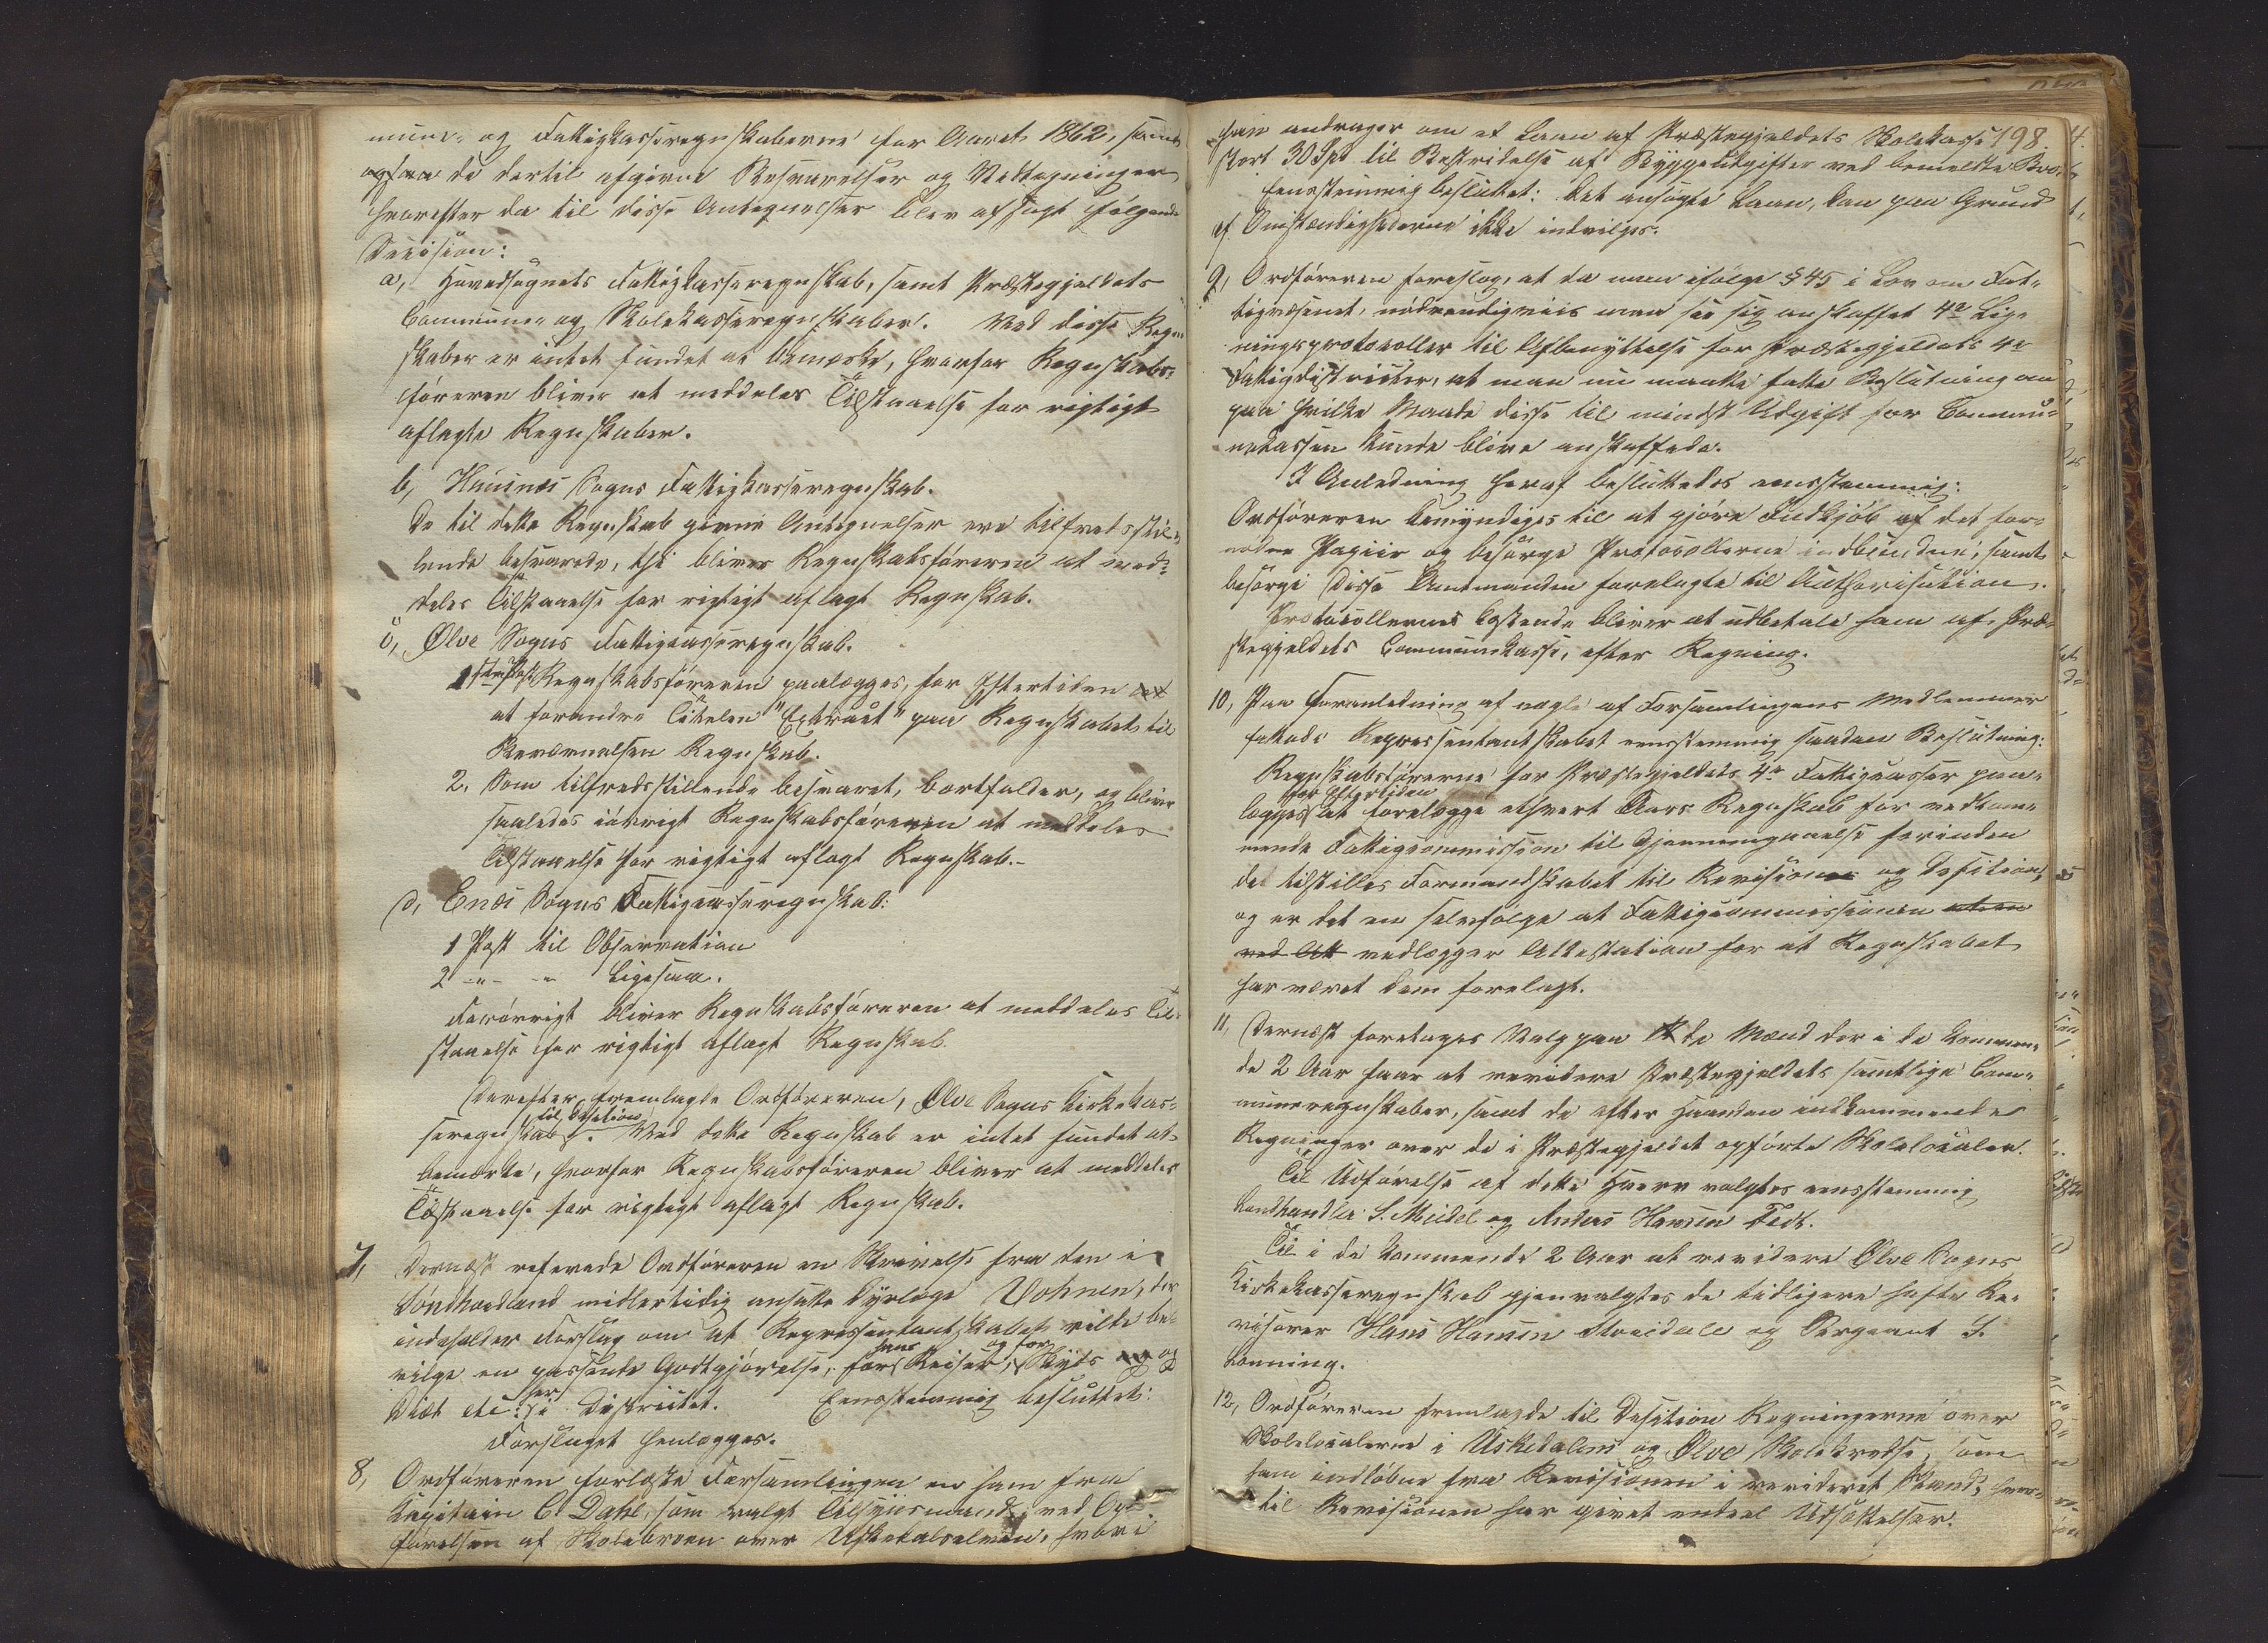 mune- og Fattigkasseregnskaberne for Aaret 1862, samt
ogsaa de dertil afgivne Besvarelser og Vedtegninger
hvorefter da til disse Antegnelser blev afsagt følgende
Decision:
a, Hovedsognets Fattigkasseregnskab, samt Præstegjeldets
Commune- og Skolekasseregnskaber. Ved disse Regn-
skaber er intet fundet at bemærke, hvorfor Regnskabs-
føreren bliver at meddeles Tilstaaelse for rigtigt
aflagte Regnskaber.
b, Huusnæs Sogns Fattigkasseregnskab.
De til dette Regnskab givne Antegnelser ere tilfredsstil-
lende besvarede, thi bliver Regnskabsføreren at med-
deles Tilstaaelse for rigtigt aflagt Regnskab.
c, Ølve Sogns Fattigcasseregnskab.
1ste Post Regnskabsføreren paalægges, for Eftertiden det
at forandre Titelen "Extract" paa Regnskabet til
Benævnelsen Regnskab.
2. Som tilfredsstillende besvaret, bortfalder, og bliver
saaledes iøvrigt Regnskabsføreren at meddeles
Tilstaaelse for rigtigt aflagt Regnskab.-
d, Enæs Sogns Fattigcasseregnskab:
1 Post til Observation
2 -"- -" Ligesaa.
Forøvrigt bliver Regnskabsføreren at meddeles Til-
staaelse for rigtigt aflagt Regnskab.
Derefter fremlagde Ordføreren, Ølve Sogns Kirkekas-
seregnskab til Desition. Ved dette Regnskab er intet fundet at
bemærke, hvorfor Regnskabsføreren bliver at meddeles
Tilstaaelse for rigtigt aflagt Regnskab.
7, Dernæst refererede Ordføreren en Skrivelse fra den i
Søndhordland midlertidig ansatte Dyrlæge Vohnen, der
indeholder Forslag om at Repræsentantskabet vilde be-
vilge en passende Godtgjørelse, for hans Reiser, og for Skyds og og
Diæt etc: her i Districtet. Eensstemmig besluttet:
Forslaget henlægges.
8, Ordføreren forelæste Forsamlingen en ham fra
Capitain C. Dahl, som valgt Tilsynsmand ved Op-
førelsen af Skolebroen over Uskedalselven, hvori
han andrager om et Laan af Præstegjeldets Skolekasse 198.
stort 30 Spd til Bestridelse af Byggeudgifter ved bemeldte Bro.
Eensstemmig besluttet: Det ansøgte Laan, kan paa Grund
af Omstændighederne ikke indvilges.
9, Ordføreren foreslog, at da man ifølge § 45 i Lov om Fat-
tigvæsenet, nødvendigviis maa see sig anskaffet 4re Lig-
ningsprotocoller til Afbenyttelse for Præstegjeldets 4re
Fattigdistricter, at man nu maatte fatte Beslutning om
paa hvilke Maade disse til mindst Udgift for Commu-
nekassen kunde blive anskaffede.
I Anledning heraf besluttedes eensstemmig:
Ordføreren bemyndiges til at gjøre Indkjøb af det for-
nødne Papiir og besørge Protocollerne indbundne, samt
besørge disse Amtmanden forelagte til Authorisation.
Protocollernes Kostende bliver at udbetale ham af Præ-
stegjeldets Communekasse, efter Regning.
10, Paa Foranledning af nogle af Forsamlingens Medlemmer
fattede Repræsentantskabet eensstemmig saadan Beslutning:
Regnskabsførerne for Præstegjeldets 4re Fattigcasser paa-
lægges for Eftertiden at forelægge ethvert Aars Regnskab for vedkom-
mende Fattigcommission til Gjennemgaaelse forinden
det tilstilles Formandskabet til Revision og Desition,
og er det en selvfølge at Fattigcommissionen uden
ved Att vedlægger Attestation for at Regnskabet
har været dem forelagt.
11, Dernæst foretoges Valg paa de Mænd der i de kommen-
de 2 Aar haar at revidere Præstegjeldets samtlige Com-
muneregnskaber, samt de efter Haanden indkommende
Regninger over de i Præstegjeldet opførte Skolelocaler.
Til Udførelse af dette Hverv valgtes eensstemmig
Landhandler S. Meidel og Anders Hansen Fedt.
Til i de kommende 2 Aar at revidere Ølve Sogns
Kirkekasseregnskab gjenvalgtes de tidligere hafte Re-
visorer Hans Hansen Steeidale og Sergeant S.
Lønning.
12, Ordføreren fremlagde til Desition Regningerne over
Skolelocalerne i Uskedalens og Ølve Skolekredse, som
ham indløbne fra Revisionen i revideret Stand, hvor-
til Revisionen har givet endeel Udsættelser.